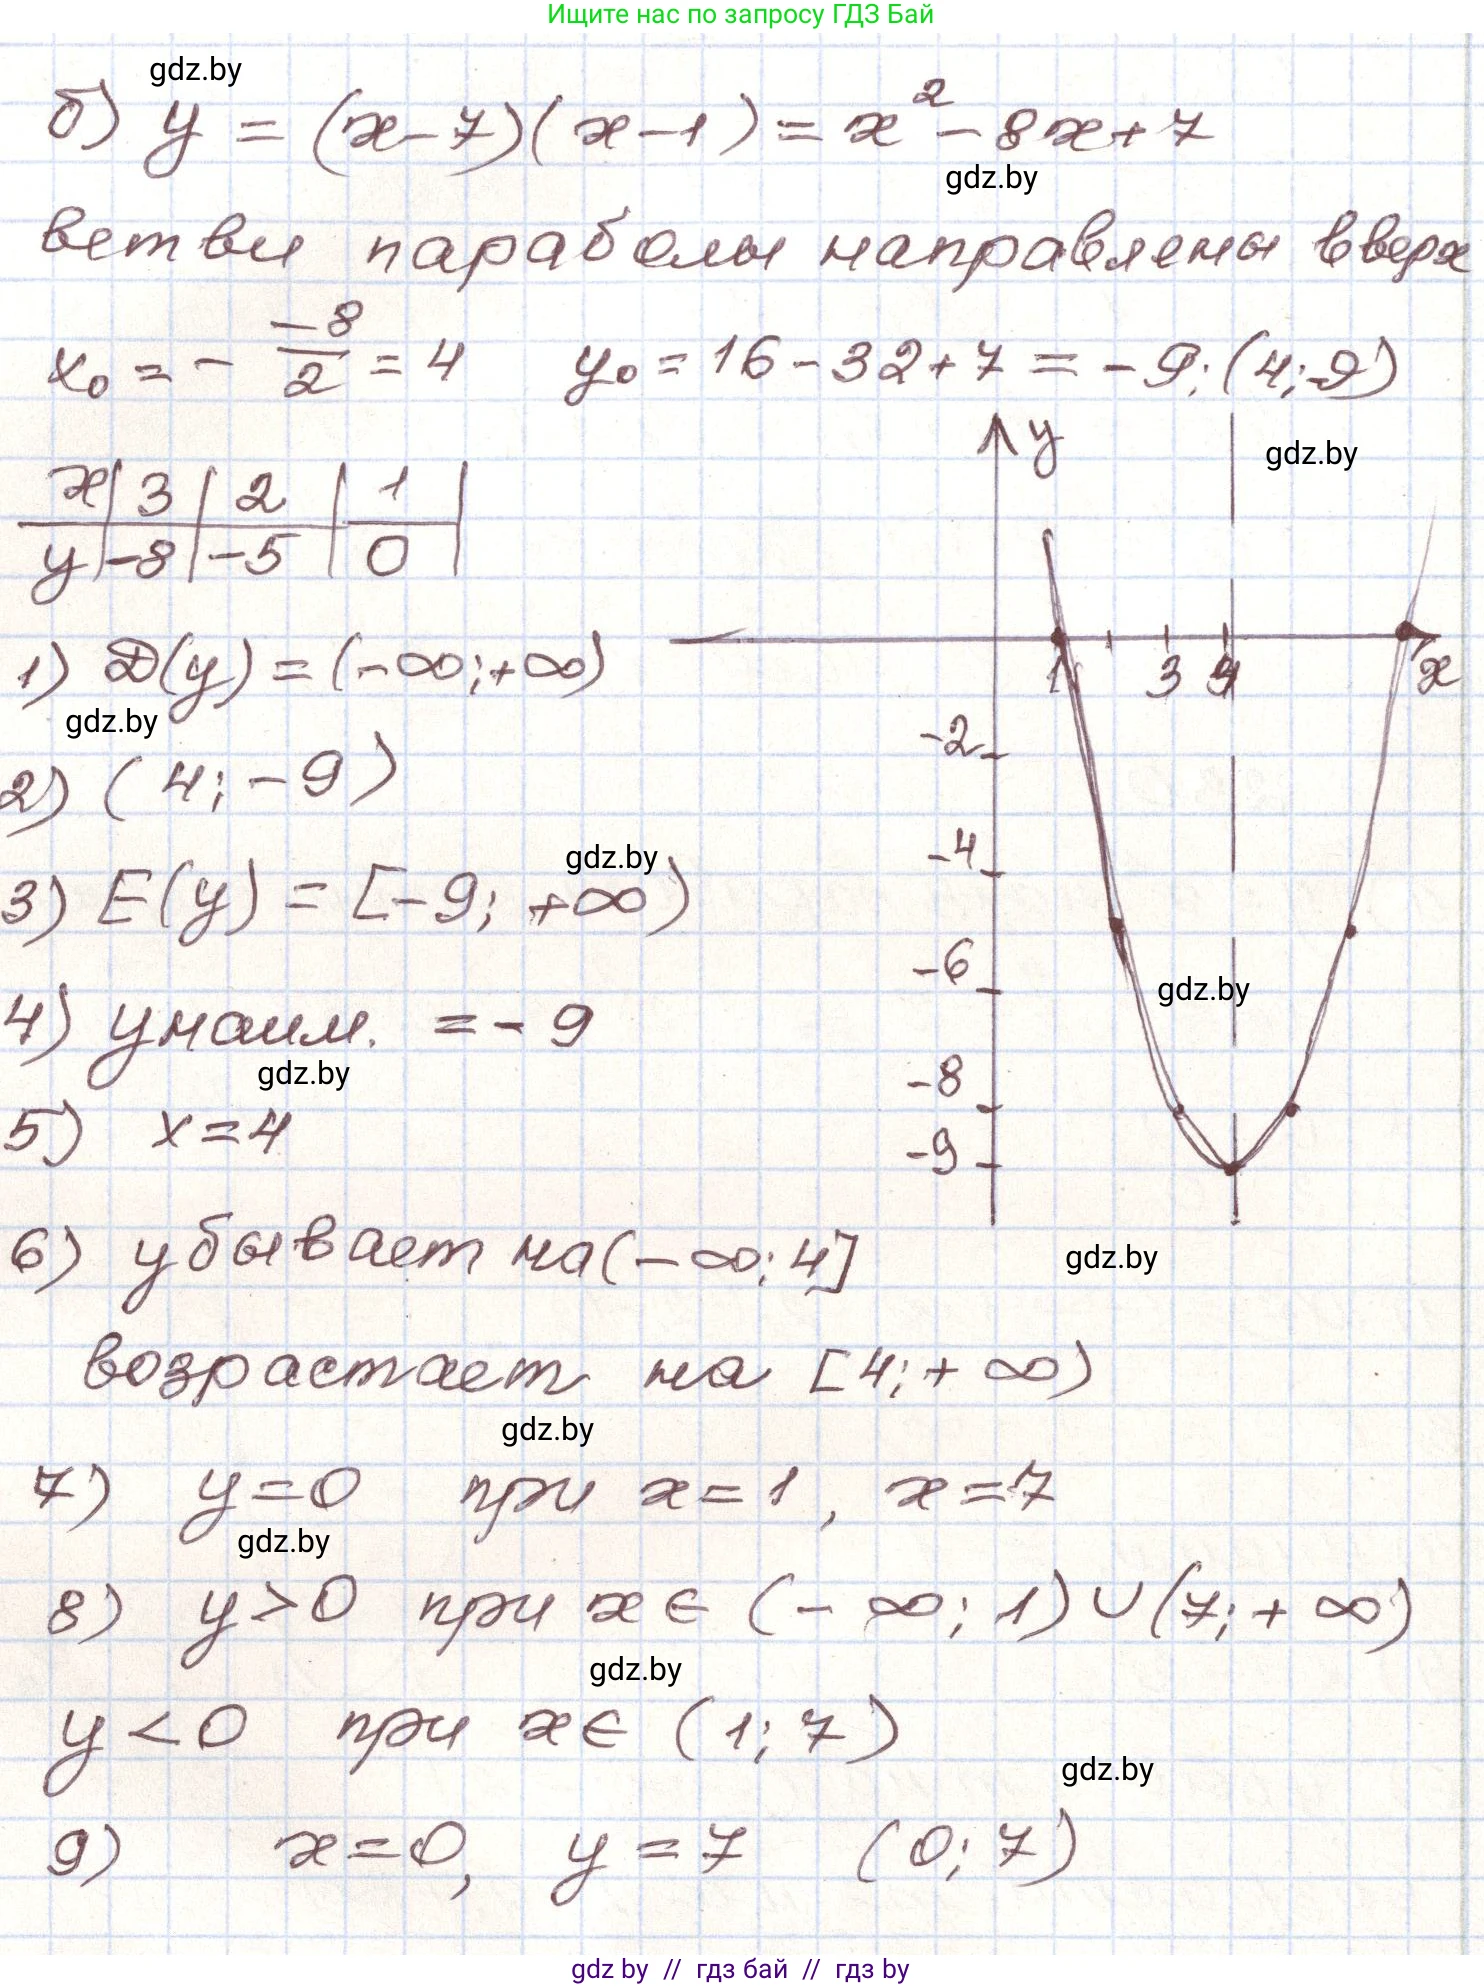 Ищите нас по запросу ГДЗ Бай
gdz.by
б) y = (x-7)(x-1) = x² - 8x + 7
gdz.by
ветви параболы направлены вверх
x₀ = - -8/2 = 4 y₀ = 16 - 32 + 7 = -9; (4; -9)
y
gdz.by
x | 3 | 2 | 1 |
y | -8 | -5 | 0 |
1 3 4 x
-2
-4
-6
-8
-9
gdz.by
gdz.by
1) D(y) = (-∞; +∞)
gdz.by
2) (4; -9)
gdz.by
3) E(y) = [-9; +∞)
4) y наим. = -9
gdz.by
5) x = 4
6) убывает на (-∞; 4]
возрастает на [4; +∞)
gdz.by
7) y = 0 при x = 1, x = 7
gdz.by
8) y > 0 при x ∈ (-∞; 1) ∪ (7; +∞)
gdz.by
y < 0 при x ∈ (1; 7)
gdz.by
9) x = 0, y = 7 (0; 7)
gdz by // гдз бай // гдз by